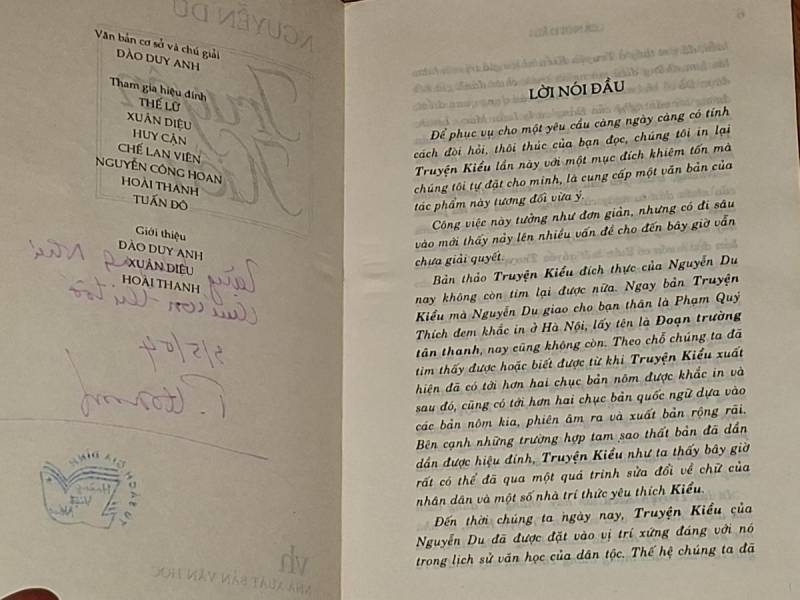 Văn bản cơ sở và chú giải
ĐÀO DUY ANH
Tham gia hiệu đính
THẾ LỮ
XUÂN DIỆU
HUY CẬN
CHẾ LAN VIÊN
NGUYỄN CÔNG HOAN
HOÀI THANH
TUẤN ĐÔ
Giới thiệu
ĐÀO DUY ANH
XUÂN DIỆU
HOÀI THANH
NGUYỄN DU
Truyện
Kiều
5/5/04
vh
NHÀ XUẤT BẢN VĂN HỌC
LỜI NÓI ĐẦU
Để phục vụ cho một yêu cầu càng ngày càng có tính
cách đòi hỏi, thôi thúc của bạn đọc, chúng tôi in lại
Truyện Kiều lần này với một mục đích khiêm tốn mà
chúng tôi tự đặt cho mình, là cung cấp một văn bản của
tác phẩm này tương đối vừa ý.
Công việc này tưởng như đơn giản, nhưng có đi sâu
vào mới thấy nảy lên nhiều vấn đề cho đến bây giờ vẫn
chưa giải quyết.
Bản thảo Truyện Kiều đích thực của Nguyễn Du
nay không còn tìm lại được nữa. Ngay bản Truyện
Kiều mà Nguyễn Du giao cho bạn thân là Phạm Quý
Thích đem khắc in ở Hà Nội, lấy tên là Đoạn trường
tân thanh, nay cũng không còn. Theo chỗ chúng ta đã
tìm thấy được hoặc biết được từ khi Truyện Kiều xuất
hiện đã có tới hơn hai chục bản nôm được khắc in và
sau đó, cũng có tới hơn hai chục bản quốc ngữ dựa vào
các bản nôm kia, phiên âm ra và xuất bản rộng rãi.
Bên cạnh những trường hợp tam sao thất bản đã dần
dần được hiệu đính, Truyện Kiều như ta thấy bây giờ
rất có thể đã qua một quá trình sửa đổi về chữ của
nhân dân và một số nhà trí thức yêu thích Kiều.
Đến thời chúng ta ngày nay, Truyện Kiều của
Nguyễn Du đã được đặt vào vị trí xứng đáng với nó
trong lịch sử văn học của dân tộc. Thế hệ chúng ta đã